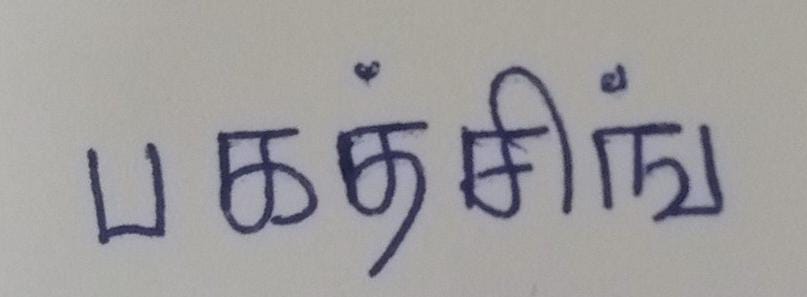 பகத்சிங்